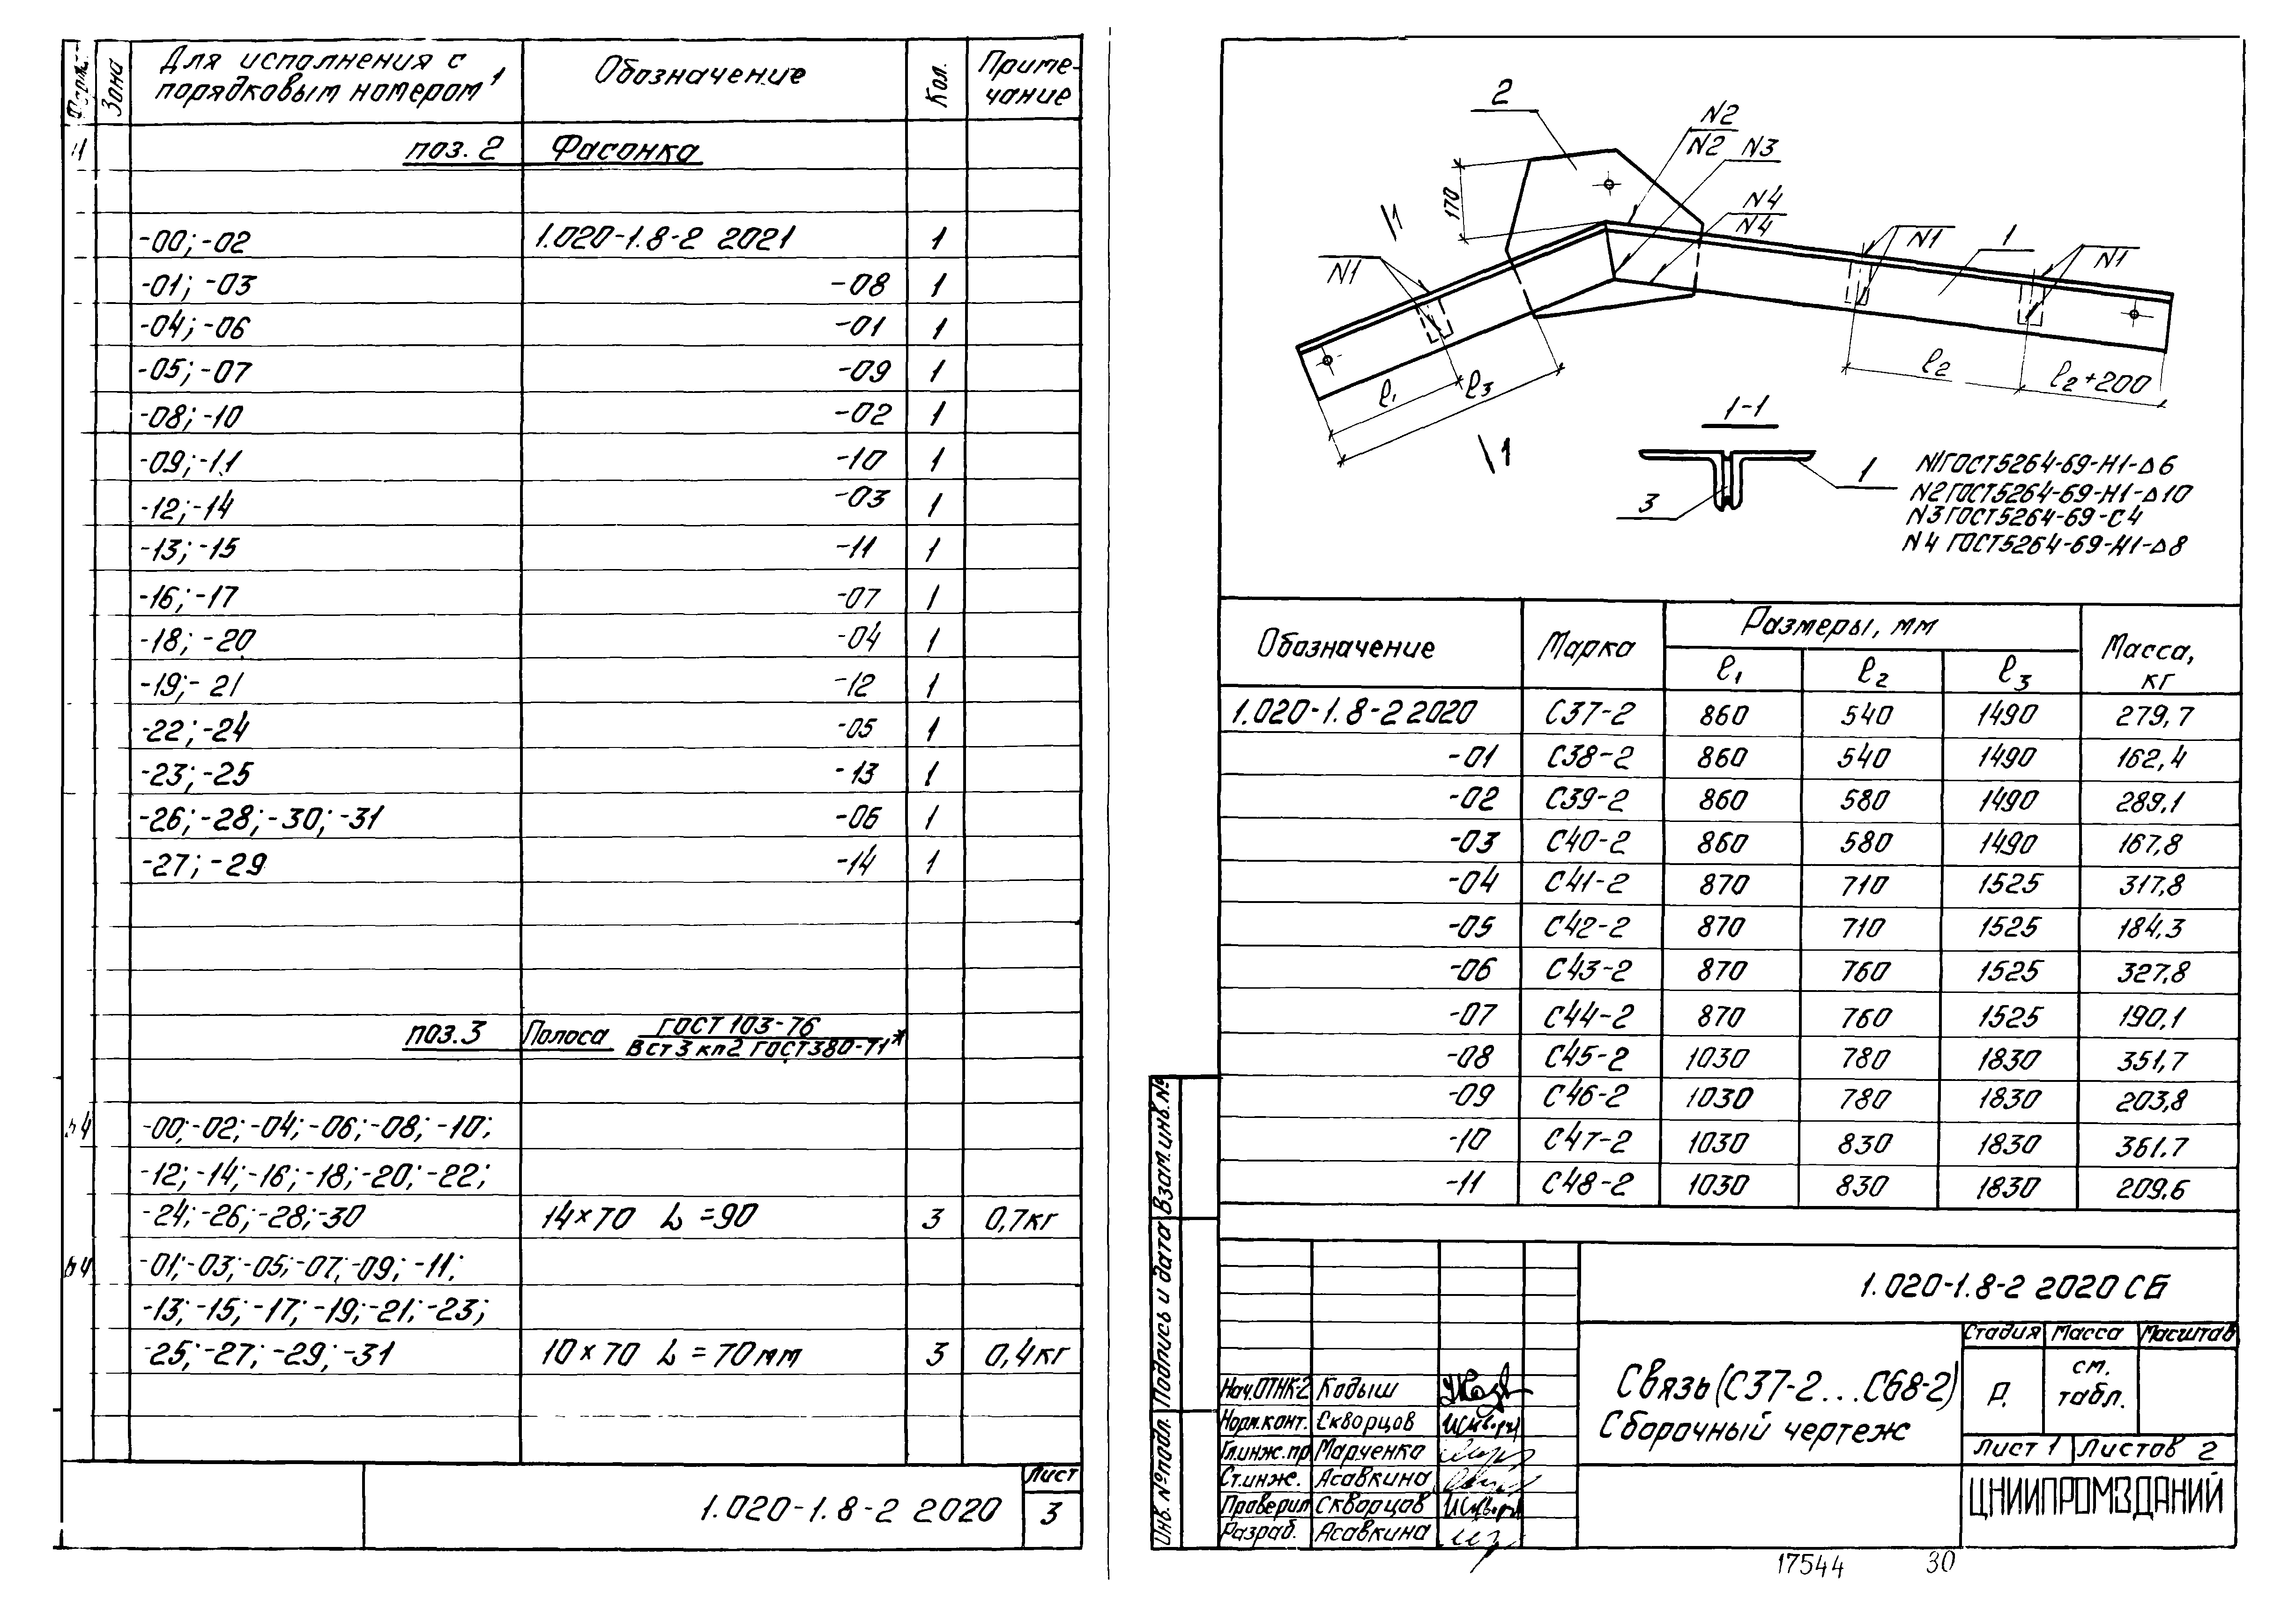 Форм.
Зона
Для исполнения с порядковым номером 1
Обозначение
Кол.
Приме-
чание
11
поз. 2 Фасонка
-00; -02 1.020-1.8-2 2021 1
-01; -03 -08 1
-04; -06 -01 1
-05; -07 -09 1
-08; -10 -02 1
-09; -11 -10 1
-12; -14 -03 1
-13; -15 -11 1
-16; -17 -07 1
-18; -20 -04 1
-19; -21 -12 1
-22; -24 -05 1
-23; -25 -13 1
-26; -28; -30; -31 -06 1
-27; -29 -14 1
поз.3 Полоса ГОСТ 103-76
В ст 3 кп2 ГОСТ 380-71*
б4 -00; -02; -04; -06; -08; -10;
-12; -14; -16; -18; -20; -22;
-24; -26; -28; -30 14×70 L =90 3 0,7кг
б4 -01; -03; -05; -07; -09; -11;
-13; -15; -17; -19; -21; -23;
-25; -27; -29; -31 10×70 L = 70мм 3 0,4кг
1.020-1.8-2 2020
Лист
3
2
N2
N2
N3
170
N4
N4
1
N1
1
N1
N1
l1
l3
l2
l2+200
1
1-1
1
3
N1 ГОСТ 5264-69-Н1-Δ6
N2 ГОСТ 5264-69-Н1-Δ10
N3 ГОСТ 5264-69-С4
N4 ГОСТ 5264-69-Н1-Δ8
Обозначение Марка Размеры, мм Масса,
кг
l1 l2 l3
1.020-1.8-2 2020 С37-2 860 540 1490 279,7
-01 С38-2 860 540 1490 162,4
-02 С39-2 860 580 1490 289,1
-03 С40-2 860 580 1490 167,8
-04 С41-2 870 710 1525 317,8
-05 С42-2 870 710 1525 184,3
-06 С43-2 870 760 1525 327,8
-07 С44-2 870 760 1525 190,1
-08 С45-2 1030 780 1830 351,7
-09 С46-2 1030 780 1830 203,8
-10 С47-2 1030 830 1830 361.7
-11 С48-2 1030 830 1830 209,6
Инв. № подл. Подпись и дата Взам. инв. №
1.020-1.8-2 2020 СБ
Стадия Масса Масштаб
Связь (С37-2...С68-2)
Сборочный чертеж
Р.
см.
табл.
Лист 1 Листов 2
ЦНИИПРОМЗДАНИЙ
Нач.ОТНК-2 Кодыш
Норм.конт. Скворцов
Гл.инж.пр Марченко
Ст.инж. Асавкина
Проверил Скворцов
Разраб. Асавкина
17544 30